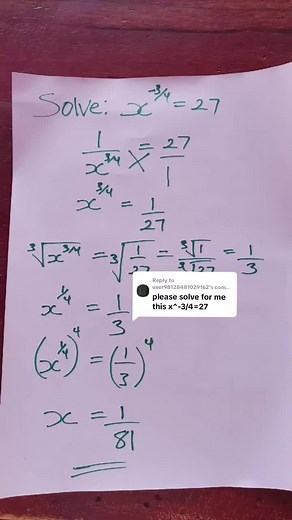 Solve: x^-3/4 = 27
1/x^3/4 = 27/1
x^3/4 = 1/27
∛x^3/4 = ∛1/27 = ∛1/∛27 = 1/3
Reply to
user98128481029162's com...
please solve for me
this x^-3/4=27
x^1/4 = 1/3
(x^1/4)^4 = (1/3)^4
x = 1/81